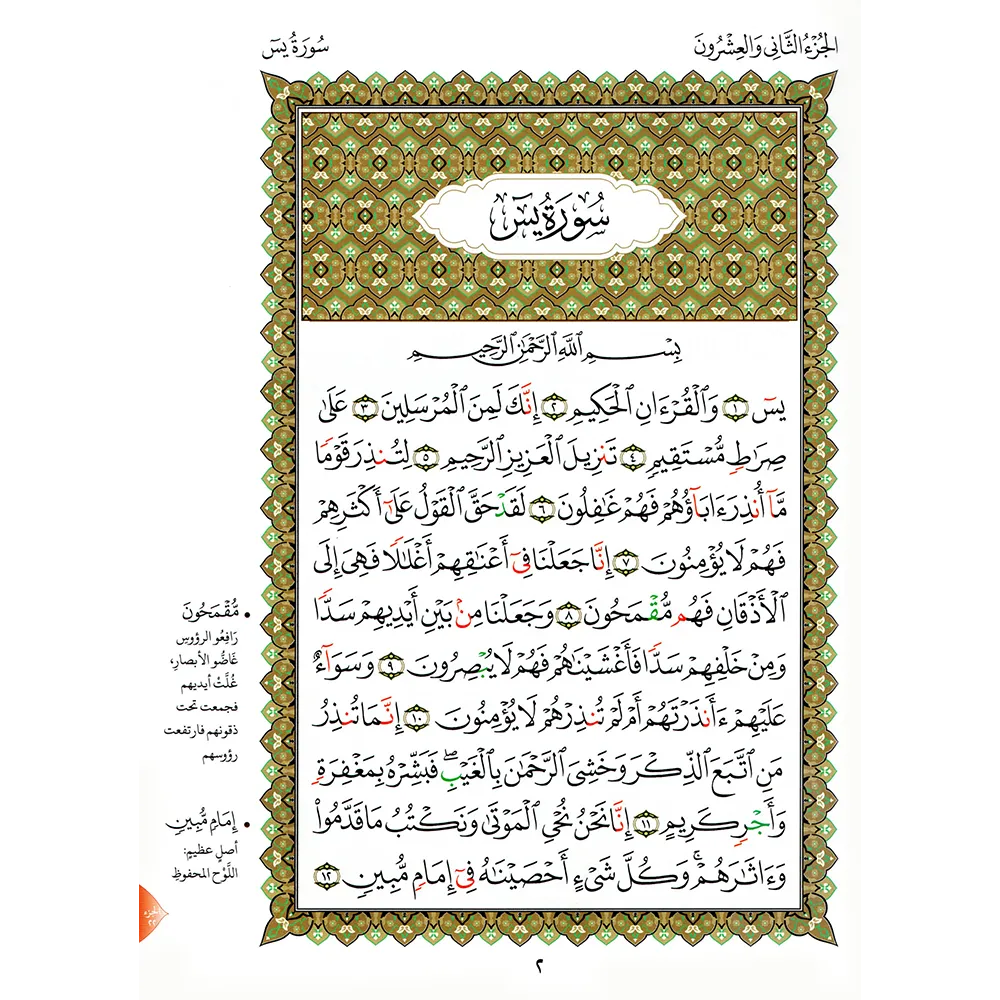 الجُزْءُ الثَّانِي وَالعِشْرُونَ
سُورَةُ يسٓ
سُورَةُ يسٓ
بِسْمِ ٱللَّهِ ٱلرَّحْمَٰنِ ٱلرَّحِيمِ
يسٓ ١ وَٱلْقُرْءَانِ ٱلْحَكِيمِ ٢ إِنَّكَ لَمِنَ ٱلْمُرْسَلِينَ ٣ عَلَىٰ
صِرَٰطٍ مُّسْتَقِيمٍ ٤ تَنزِيلَ ٱلْعَزِيزِ ٱلرَّحِيمِ ٥ لِتُنذِرَ قَوْمًا
مَّآ أُنذِرَ ءَابَآؤُهُمْ فَهُمْ غَٰفِلُونَ ٦ لَقَدْ حَقَّ ٱلْقَوْلُ عَلَىٰٓ أَكْثَرِهِمْ
فَهُمْ لَا يُؤْمِنُونَ ٧ إِنَّا جَعَلْنَا فِىٓ أَعْنَٰقِهِمْ أَغْلَٰلًا فَهِىَ إِلَى
ٱلْأَذْقَانِ فَهُم مُّقْمَحُونَ ٨ وَجَعَلْنَا مِنۢ بَيْنِ أَيْدِيهِمْ سَدًّا
وَمِنْ خَلْفِهِمْ سَدًّا فَأَغْشَيْنَٰهُمْ فَهُمْ لَا يُبْصِرُونَ ٩ وَسَوَآءٌ
عَلَيْهِمْ ءَأَنذَرْتَهُمْ أَمْ لَمْ تُنذِرْهُمْ لَا يُؤْمِنُونَ ١٠ إِنَّمَا تُنذِرُ
مَنِ ٱتَّبَعَ ٱلذِّكْرَ وَخَشِىَ ٱلرَّحْمَٰنَ بِٱلْغَيْبِ ۖ فَبَشِّرْهُ بِمَغْفِرَةٍ
وَأَجْرٍ كَرِيمٍ ١١ إِنَّا نَحْنُ نُحْىِ ٱلْمَوْتَىٰ وَنَكْتُبُ مَا قَدَّمُوا۟
وَءَاثَٰرَهُمْ ۚ وَكُلَّ شَىْءٍ أَحْصَيْنَٰهُ فِىٓ إِمَامٍ مُّبِينٍ ١٢
• مُّقْمَحُونَ
رَافِعُو الرؤوسِ
غَاضُّو الأبصارِ،
غُلَّتْ أيديهم
فجمعت تحت
ذقونهم فارتفعت
رؤوسهم
• إِمَامٍ مُّبِينٍ
أصلٍ عظيمٍ:
اللَّوْحِ المحفوظِ
الجزء
٢٢
٢